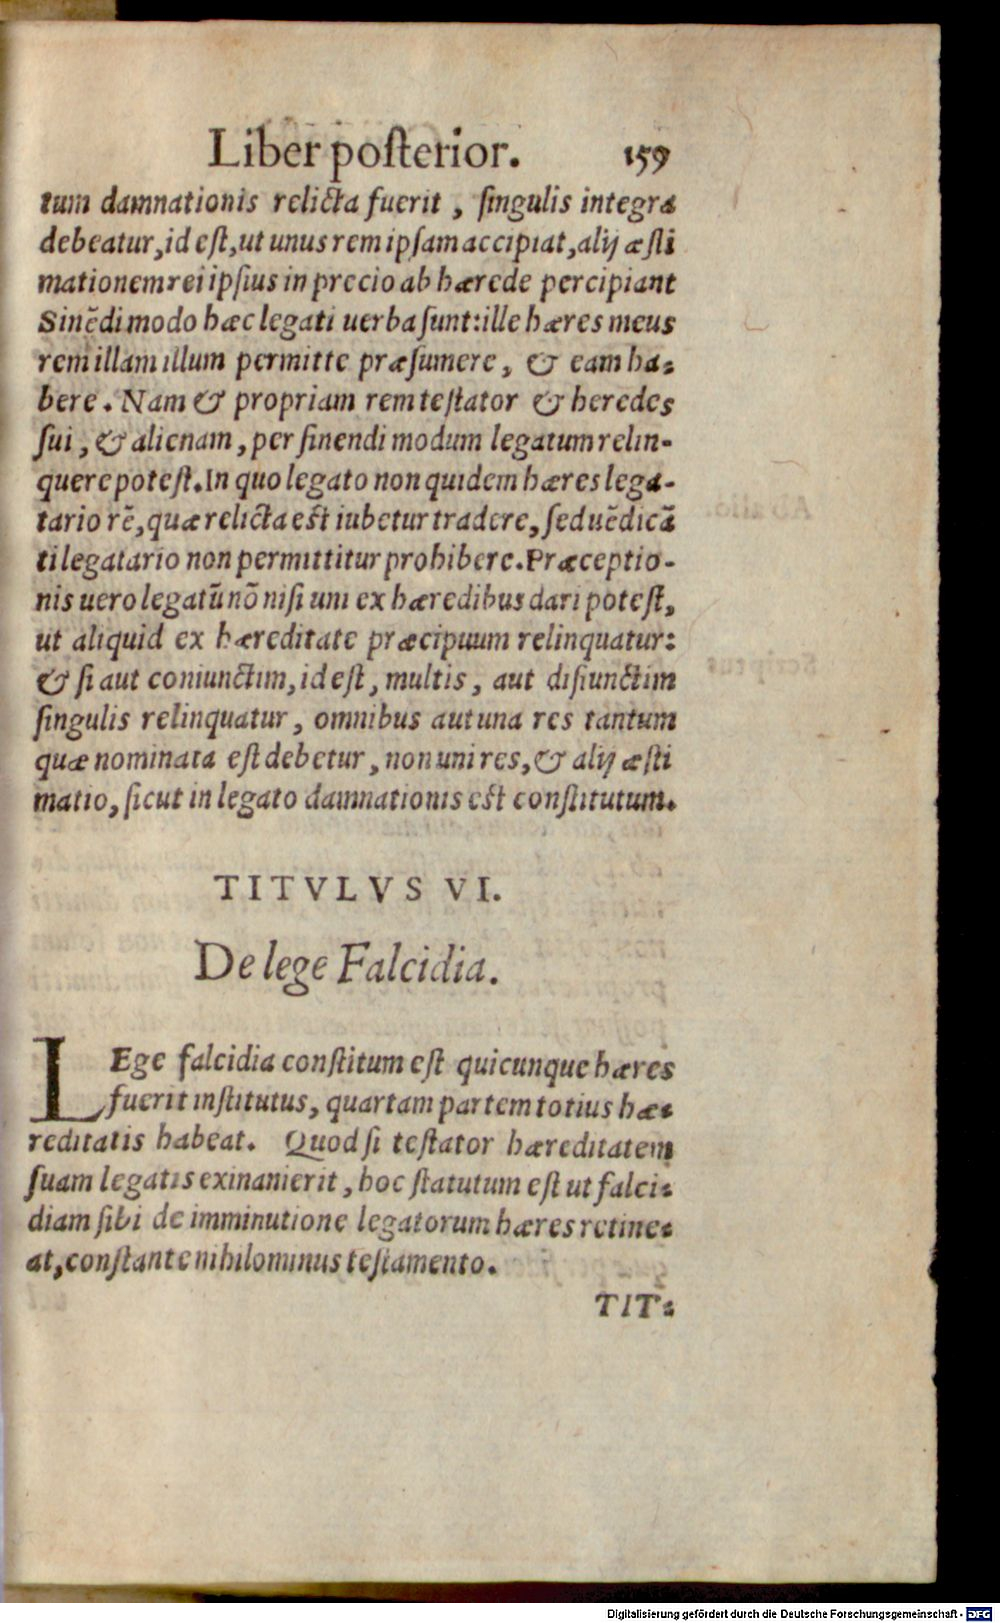 Liber posterior. 159
tum damnationis relicta fuerit, singulis integra
debeatur, id est, ut unus rem ipsam accipiat, alij æsti
mationem rei ipsius in precio ab hærede percipiant
Sinēdi modo hæc legati uerba sunt: ille hæres meus
rem illam illum permitte præsumere, & eam ha-
bere. Nam & propriam rem testator & heredes
sui, & alienam, per sinendi modum legatum relin-
quere potest. In quo legato non quidem hæres lega-
tario rē, quæ relicta est iubetur tradere, sed uēdicā
ti legatario non permittitur prohibere. Præceptio-
nis uero legatū nō nisi uni ex hæredibus dari potest,
ut aliquid ex hæreditate præcipuum relinquatur:
& si aut coniunctim, id est, multis, aut disiunctim
singulis relinquatur, omnibus aut una res tantum
quæ nominata est debetur, non uni res, & alij æsti
matio, sicut in legato damnationis est constitutum.
TITVLVS VI.
De lege Falcidia.
LEge falcidia constitum est quicunque hæres
fuerit institutus, quartam partem totius hæ-
reditatis habeat. Quod si testator hæreditatem
suam legatis exinanierit, hoc statutum est ut falci-
diam sibi de imminutione legatorum hæres retine-
at, constante nihilominus testamento.
TIT-
Digitalisierung gefördert durch die Deutsche Forschungsgemeinschaft - DFG